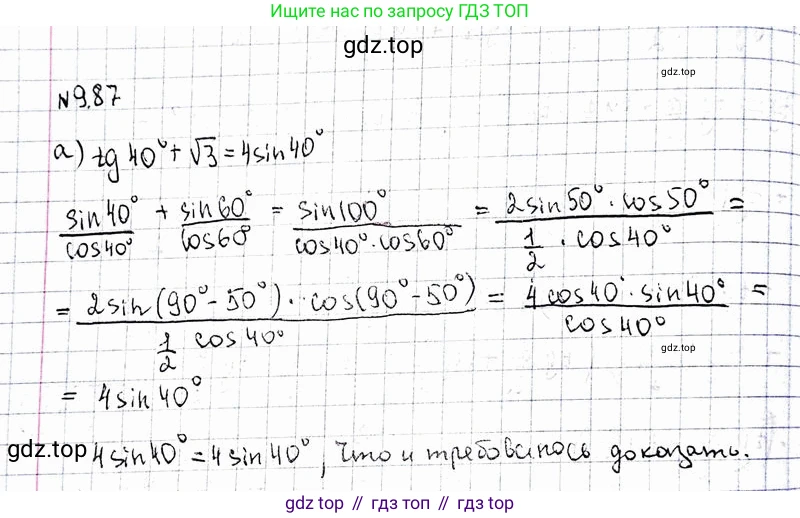 Ищите нас по запросу ГДЗ ТОП
gdz.top
gdz.top
№9.87
а) tg 40° + √3 = 4sin40°
sin40°/cos40° + sin60°/cos60° = sin100°/(cos40°·cos60°) = 2sin50°·cos50°/(1/2·cos40°) =
= 2sin(90°-50°)·cos(90°-50°)/(1/2 cos40°) = 4cos40°·sin40°/cos40° =
gdz.top
= 4sin40°
gdz.top 4sin40° = 4sin40°, что и требовалось доказать.
gdz.top // гдз топ // gdz.top